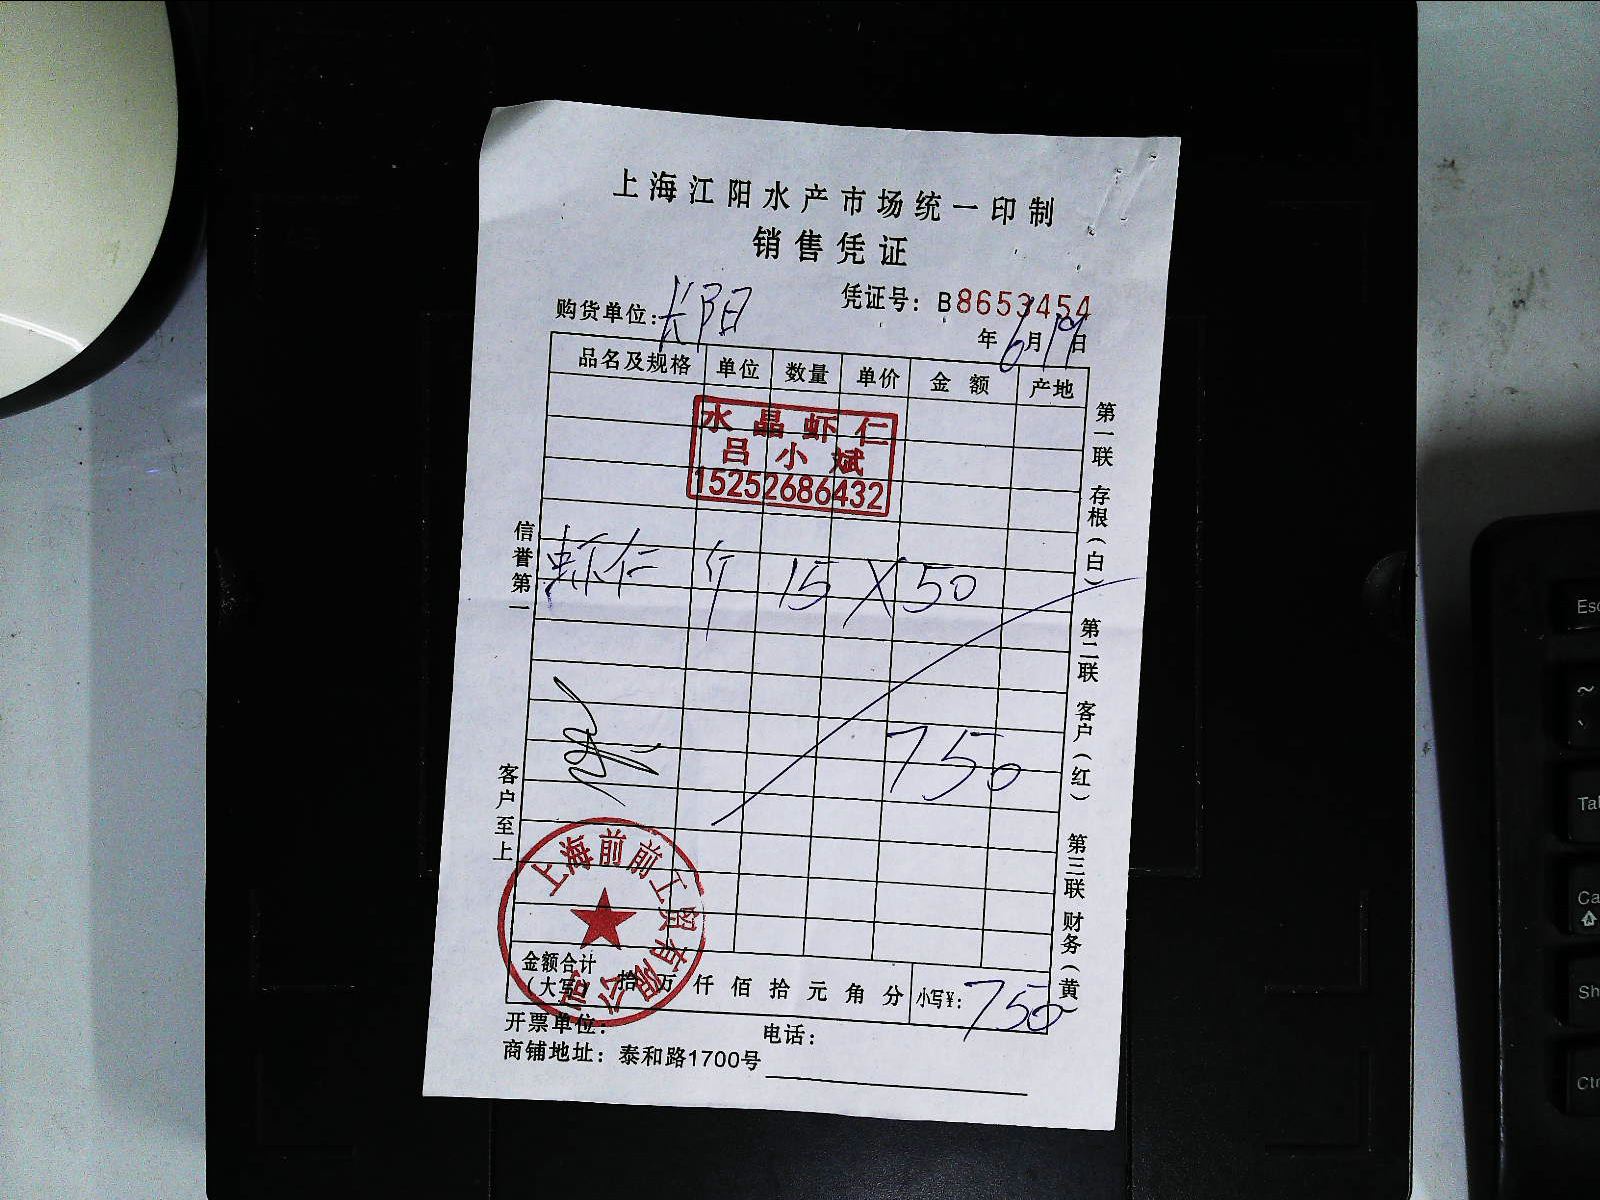 上海江阳水产市场统一印制
销售凭证
购货单位:长阳
凭证号: B8653454
年6月19日
品名及规格 单位 数量 单价 金额 产地
水晶虾仁
吕小斌
15252686432
虾仁 15 X 50
750
信誉第一
客户至上
第一联 存根(白)
第二联 客户(红)
第三联 财务(黄)
上海前前工贸有限公司
金额合计
(大写) 拾万仟佰拾元角分 小写¥: 750
开票单位: 电话:
商铺地址: 泰和路1700号
Esc
~
`
Tab
Ca
Sh
Ctr